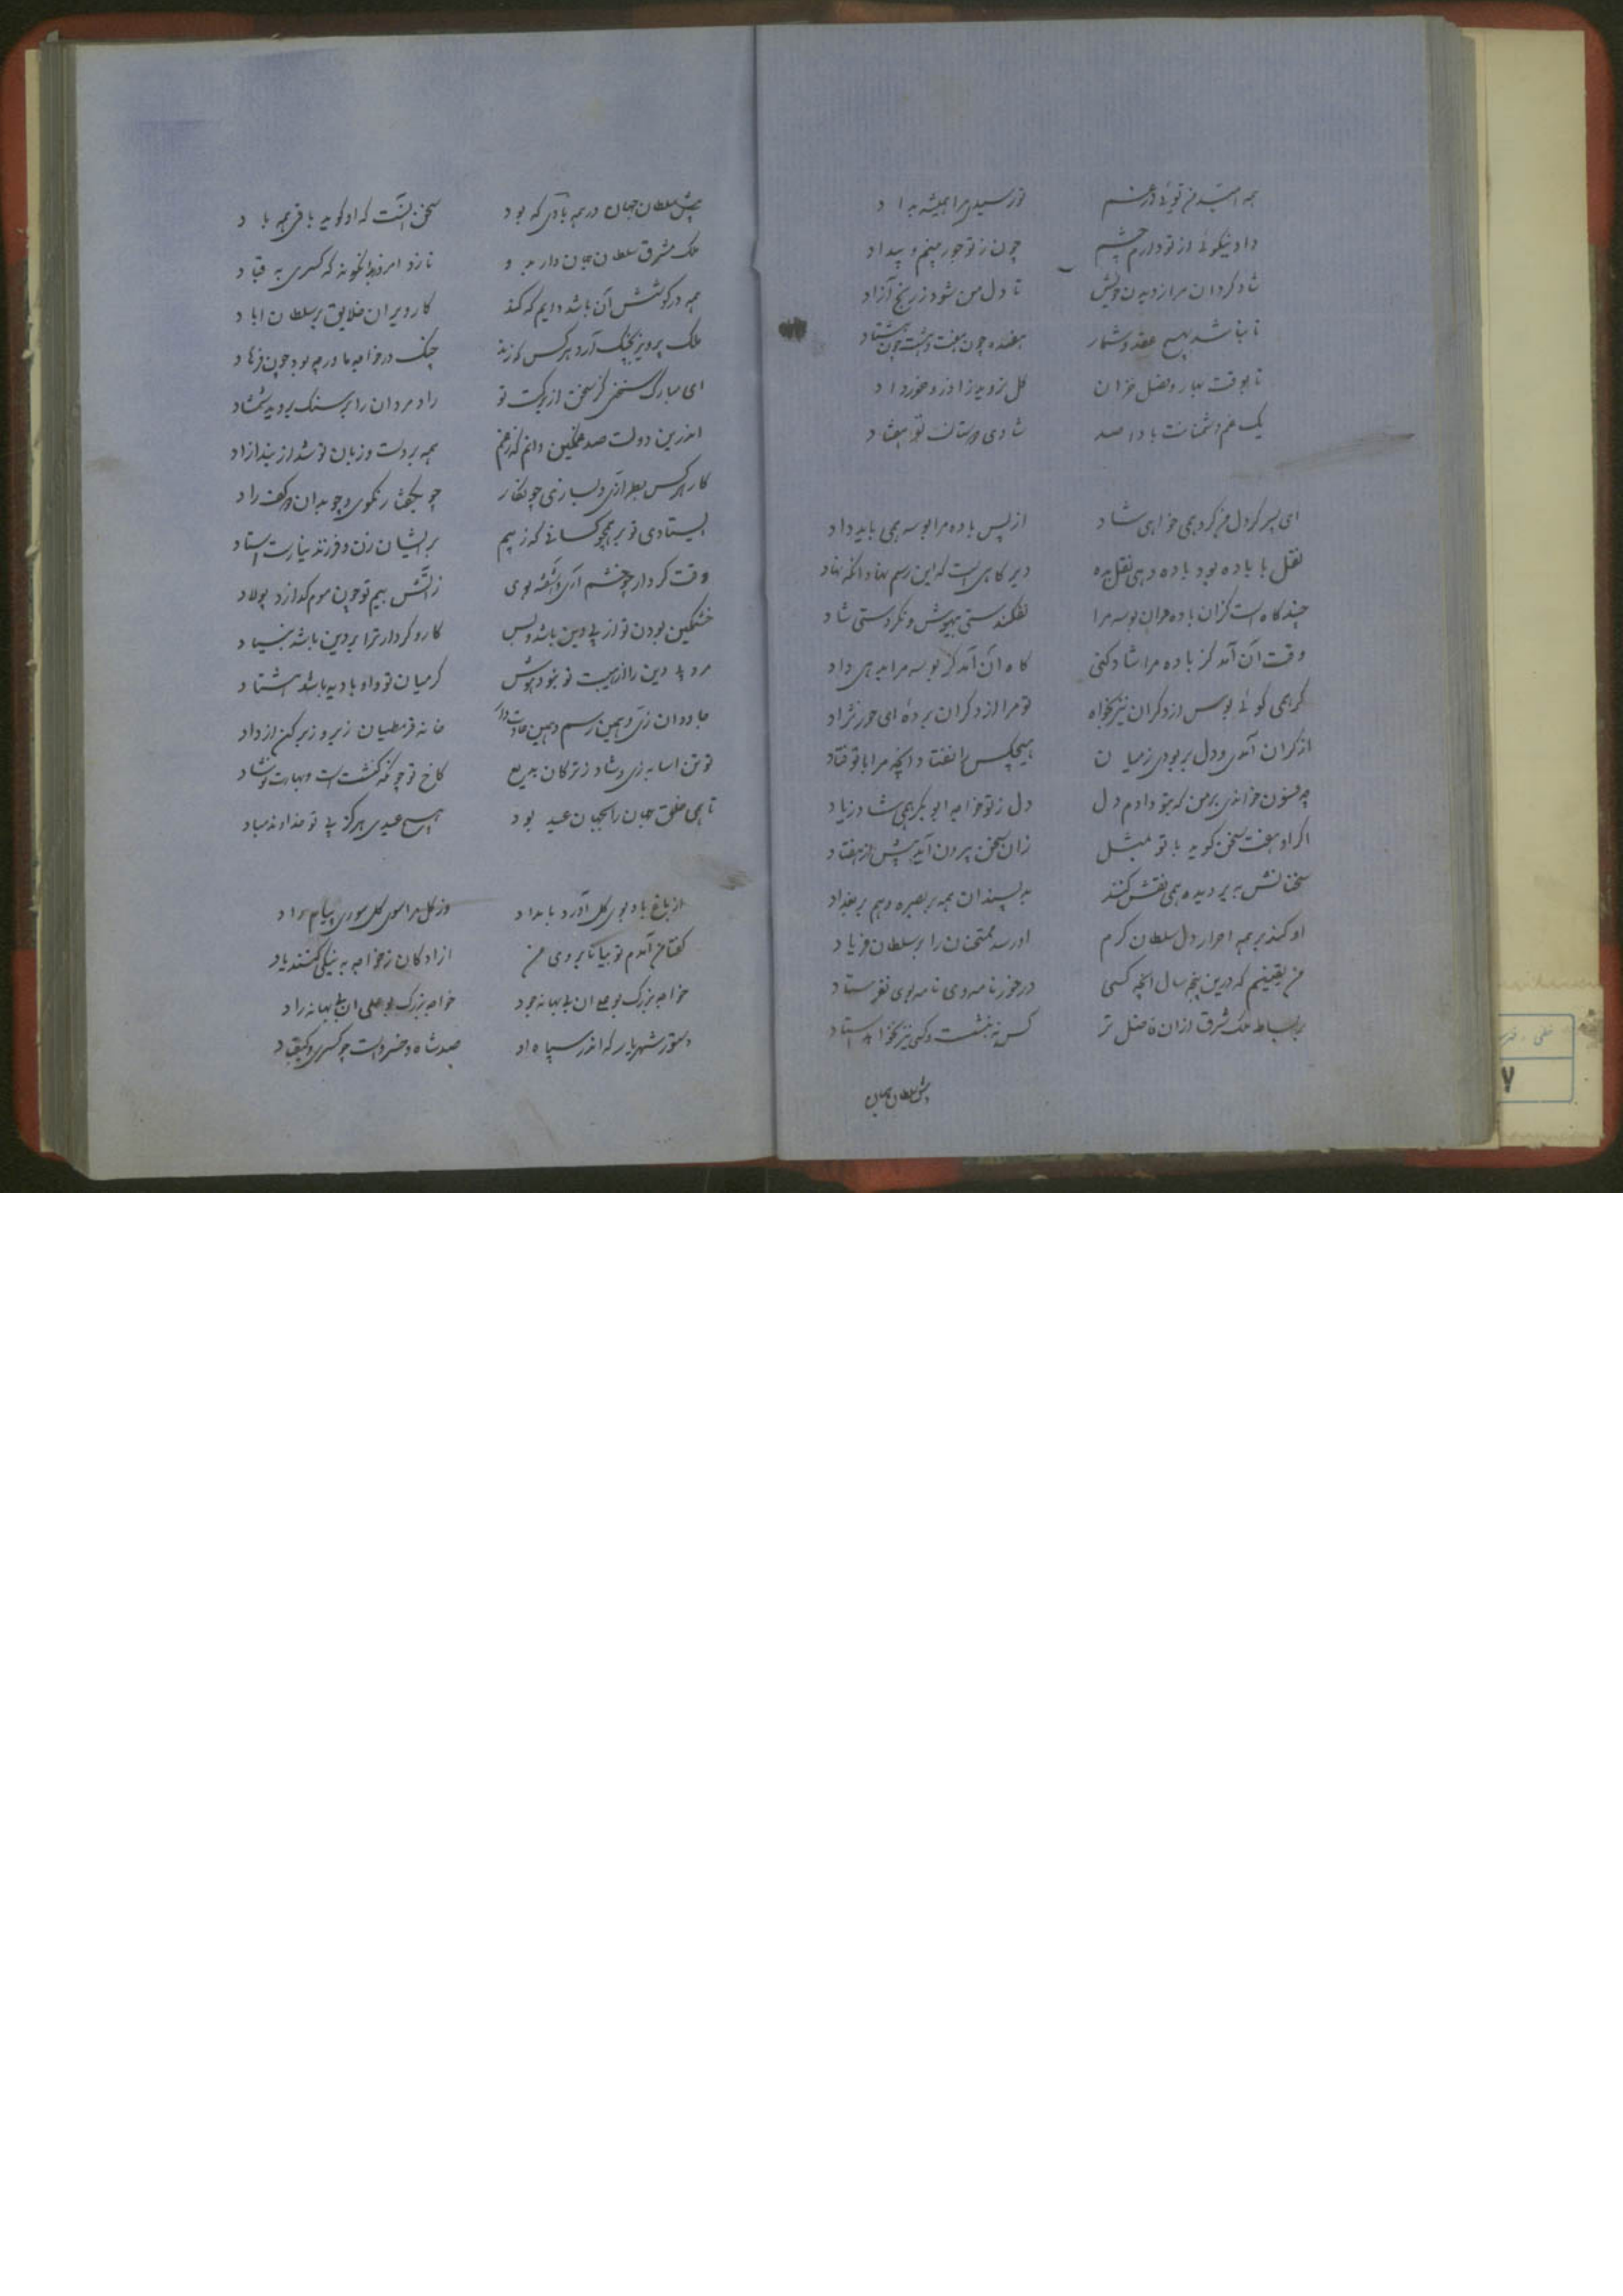 همه امید من توئی در غم تو رسیدی مرا همیشه بداد
داد نیکوئی از تو دارم چشم چون ز تو جور بینم و بیداد
شاد گردان مرا ز دیدن خویش تا دل من شود ز رنج آزاد
تا نباشد بهیچ عقد و شمار هفده چون هفت و هشت چون هشتاد
تا بوقت بهار و فصل خزان گل نروید ز آذر و خرداد
یک غم دشمنانت بادا صد شادی دوستانت تو هفتاد
ای پسر گر دل من کرد همی خواهی شاد از پس باده مرا بوسه همی باید داد
نقل با باده بود باده دهی نقل بده دیر گاهی است که این رسم نهاد انکه نهاد
چند گاه است کزان باده و زان بوسه مرا نفکندستی بیهوش و نکردستی شاد
وقت آن آمد کز باده مرا شاد کنی گاه آن آمد کز بوسه مرا بدهی داد
گر همی گوئی بوس از دگران نیز بخواه تو مرا از دگران برده ای حور نژاد
از کران آمدی و دل بربودی ز میان هیچکس را نفتاد انچه مرا با تو فتاد
چه فسون خواندی بر من که بتو دادم دل دل ز تو خواجه ابوبکر همی شاد زیاد
اگر او هفت سخن گوید با تو بمثل زان سخن بیرون آید بیش از هفتاد
سخنانش به بر دیده همی نقش کنند به پسندان همه بر بصره و هم بر بغداد
او کند بر همه احرار دل سلطان گرم او رسد ممتحنان را بر سلطان فریاد
من یقینم که درین پنجه سال انچه کسی درخور نامه وی نامه بوی نفرستاد
بر بساط ملک شرق ازان فاضل تر کس نه بنشست و کسی نیز نخواهد استاد
پیش سلطان جهان
پیش سلطان جهان در همه بادی که بود سخن آنست که او گوید باقی همه باد
ملک مشرق سلطان جهان دارد و نازد امروز بدانگونه که کسری به قباد
همه در کوشش آن باشد دایم که کند کار ویران خلایق بر سلطان اباد
ملک پرویز بچنگ آرد هر کس که زند چنگ در خواجه ما ور چه بود چون فرهاد
ای مبارک سخنی کز سخن از برکت تو راد مردان را بر سنگ بروید شمشاد
اندرین دولت صد غمگین دانم کز غم همه بر دست و زبان تو شد از بند ازاد
کار هر کس بطرازی و بسازی چو نگار چو بگفتار نکوی و چو بدان دو کف راد
بیستادی تو بر همچو کسانی که ز بیم بر ایشان زن و فرزند نیارست استاد
وقت کردار چو خشم اری و اشفته بوی ز اتش بیم تو چون موم گدازد پولاد
خشمگین بودن تو از پی دین باشد و بس کار و کردار ترا بر دین باشد بنیاد
مرد بد دین را از هیبت تو نبود هوش گر میان تو و او بادیه باشد هشتاد
جاودان زی و همین رسم و همین عادت دار خانه قرمطیان زیر و زبر کن از داد
تو تن اسا به زی و شاد ز ترکان بدیع کاخ تو چونکه کنشت است و بهار نوشاد
تا همی خلق جهان را بجهان عید بود هیچ عیدی هرگز بی تو خداوند مباد
از باغ باد بوی گل آورد بامداد وز گل مرا سوی گل سوری پیام داد
گفتا من آمدم تو بیا تا بروی من ازادگان ز خواجه به نیکی کنند یاد
خواجه بزرگ بوعلی ان بی بهانه جود خواجه بزرگ بوعلی ان بی بهانه راد
دستور شهریار که اندر سپاه او صد شاه و خسرو است چو کسری و کیقباد